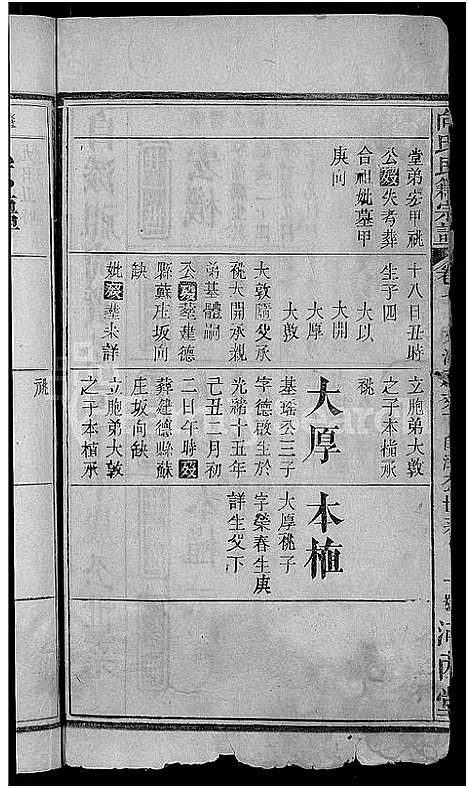 堂弟宏甲祧
公歿失考葬
合祖妣墓甲
庚向
十八日丑時
生子四
大以
大開
大厚
大敦
大敦隨父承
祧大開承親
弟基體嗣
公歿葬建德
縣蘇庄坂向
缺
妣歿葬未詳
立胞弟大敦
之子本植承
祧
大厚
基瑤公三子
字德啟生於
光緒十五年
己丑三月初
二日午時歿
葬建德縣蘇
庄坂向缺
立胞弟大敦
之子本植承
祧
本植
大厚祧子
字榮春生庚
詳生父下